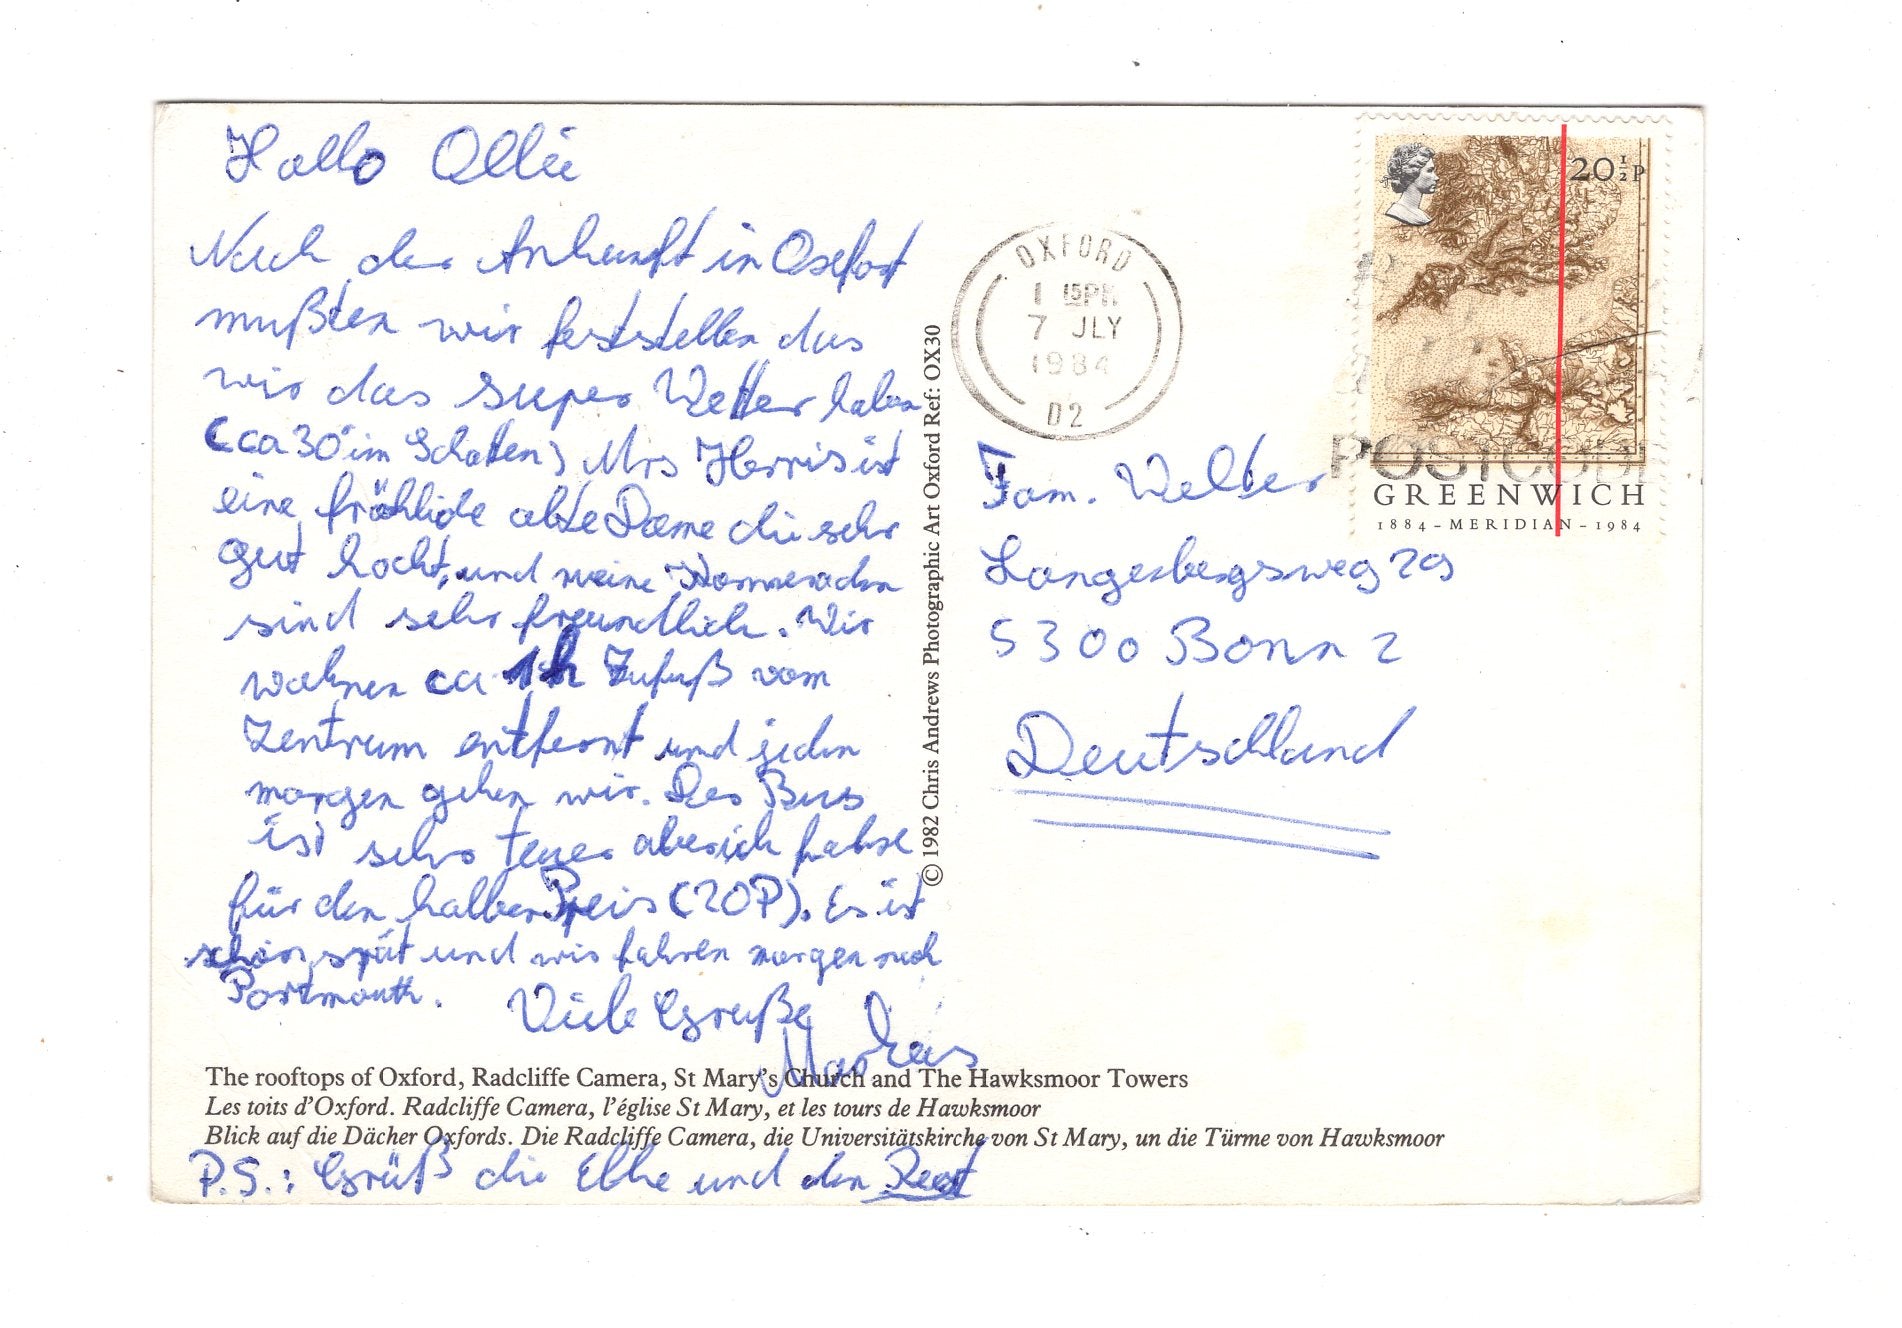 Hallo Ollie
Nach der Ankunft in Oxfort
mußten wir feststellen das
wir das super Wetter haben
(ca 30° im Schatten) Mrs Herris ist
eine fröhliche alte Dame die sehr
gut kocht, und meine Kommeraden
sind sehr freundlich. Wir
wohnen ca 1h Zufuß vom
Zentrum entfernt und jeden
morgen gehen wir. Der Bus
ist sehr teuer aber ich fahre
für den halben Preis (20P). Es ist
schon spät und wir fahren morgen nach
Portmouth.
Viele Gruße
Markus
The rooftops of Oxford, Radcliffe Camera, St Mary's Church and The Hawksmoor Towers
Les toits d'Oxford. Radcliffe Camera, l'église St Mary, et les tours de Hawksmoor
Blick auf die Dächer Oxfords. Die Radcliffe Camera, die Universitätskirche von St Mary, un die Türme von Hawksmoor
P.S.: Grüß die Elke und den Rest
© 1982 Chris Andrews Photographic Art Oxford Ref: OX30
OXFORD
1 15PM
7 JLY
1984
D2
20½P
POSTCODE
GREENWICH
1884 - MERIDIAN - 1984
Fam. Welter
Langenbergsweg 29
5300 Bonn 2
Deutschland